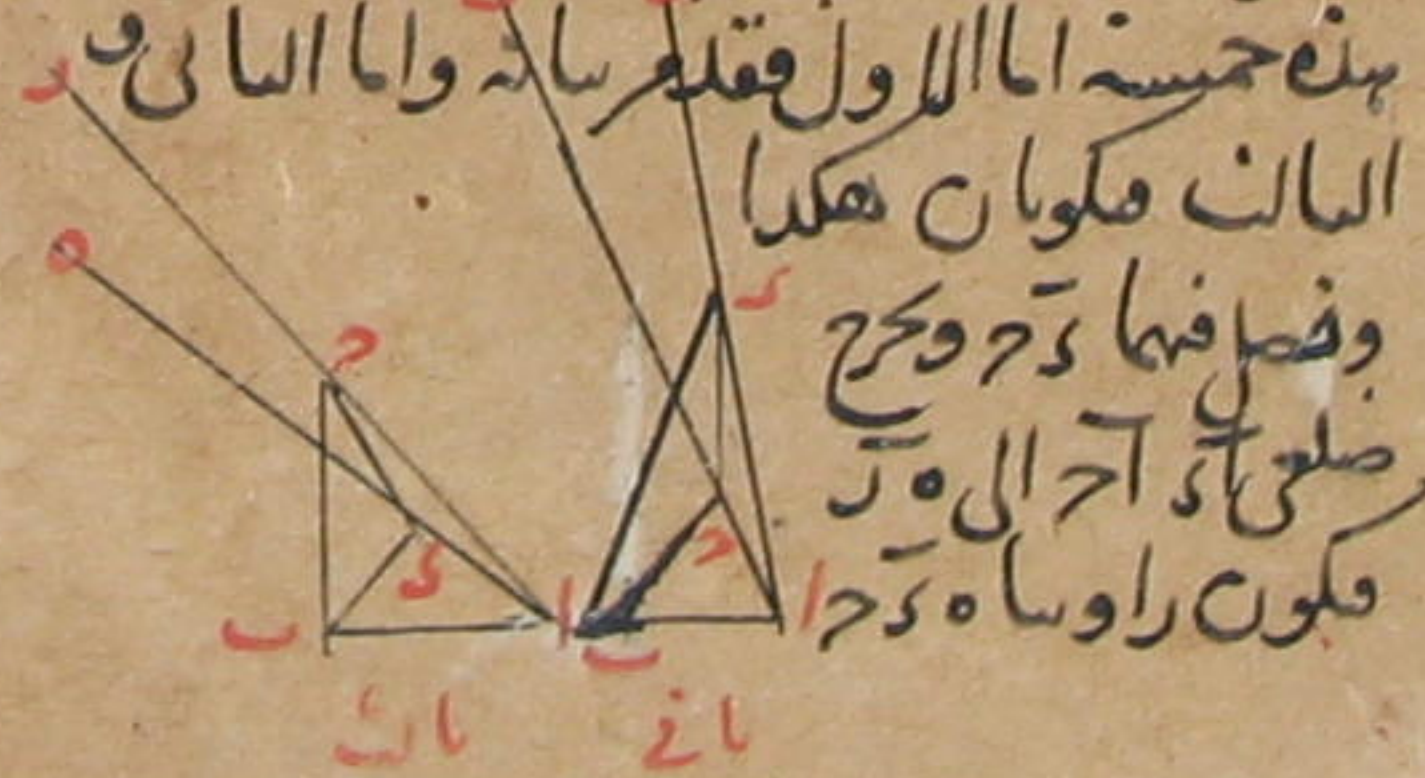 هذه خمسة اما الاول فقد مر بيانه واما الثاني و
الثالث فيكونان هكذا
ونصل فيهما ءح ونخرج
ضلعي اء اح الى ه ر
فيكون زاويتا ه ء ح
ر
ه
ح
ء
ا
ب
ء
ح
ا
ب
ثاني
ثالث